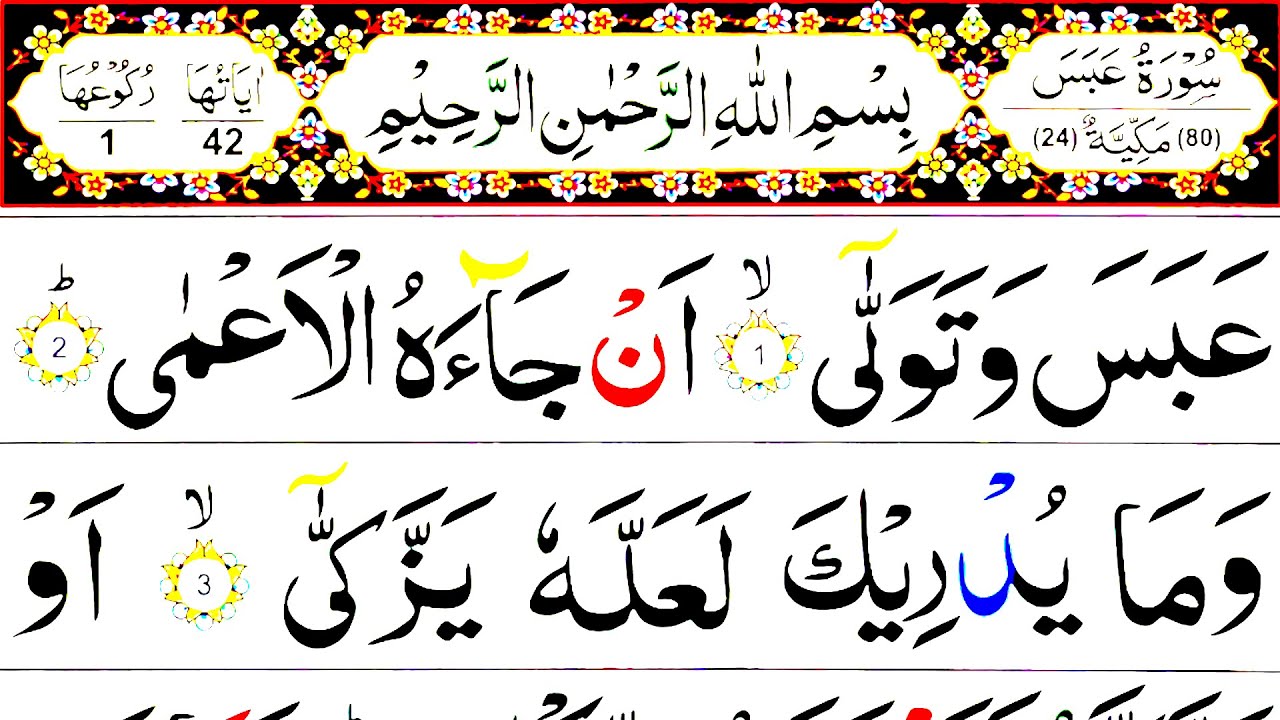 سُوْرَةُ عَبَسَ
(80) مَكِّيَّةٌ (24)
بِسْمِ اللّٰهِ الرَّحْمٰنِ الرَّحِيْمِ
اٰيَاتُهَا 42
رُكُوْعُهَا 1
عَبَسَ وَتَوَلّٰٓى ۙ 1 اَنْ جَآءَهُ الْاَعْمٰى ؕ 2
وَمَا يُدْرِيْكَ لَعَلَّهٗ يَزَّكّٰٓى ۙ 3 اَوْ